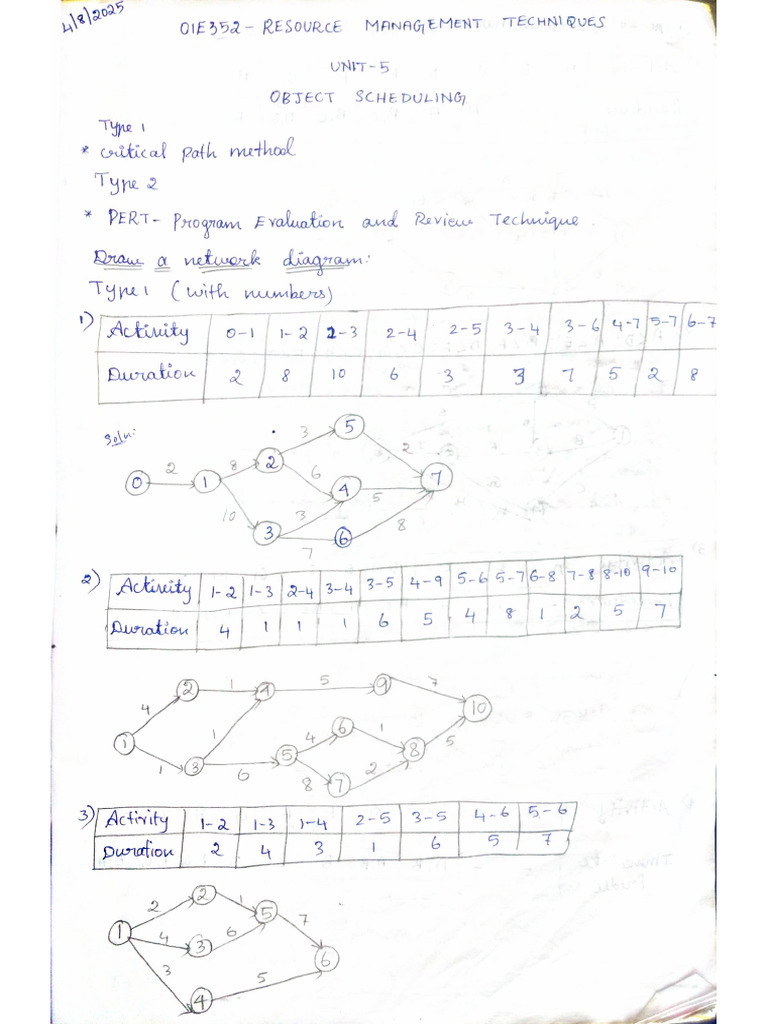 4/8/2025
OIE352 - RESOURCE MANAGEMENT TECHNIQUES
UNIT-5
OBJECT SCHEDULING
Type 1
* Critical path method
Type 2
* PERT- Program Evaluation and Review Technique
Draw a network diagram:
Type 1 (with numbers)
1) Activity 0-1 1-2 1-3 2-4 2-5 3-4 3-6 4-7 5-7 6-7
Duration 2 8 10 6 3 3 7 5 2 8
Soln:
0 2 1 8 2 3 5 2 7
6 4 5
10 3 3 7 6 8
2) Activity 1-2 1-3 2-4 3-4 3-5 4-9 5-6 5-7 6-8 7-8 8-10 9-10
Duration 4 1 1 1 6 5 4 8 1 2 5 7
4 2 1 4 5 9 7 10
1 1 3 1 6 5 4 6 1 8 5
8 7 2
3) Activity 1-2 1-3 1-4 2-5 3-5 4-6 5-6
Duration 2 4 3 1 6 5 7
2 2 1 5 7
1 4 3 6 6
3 4 5